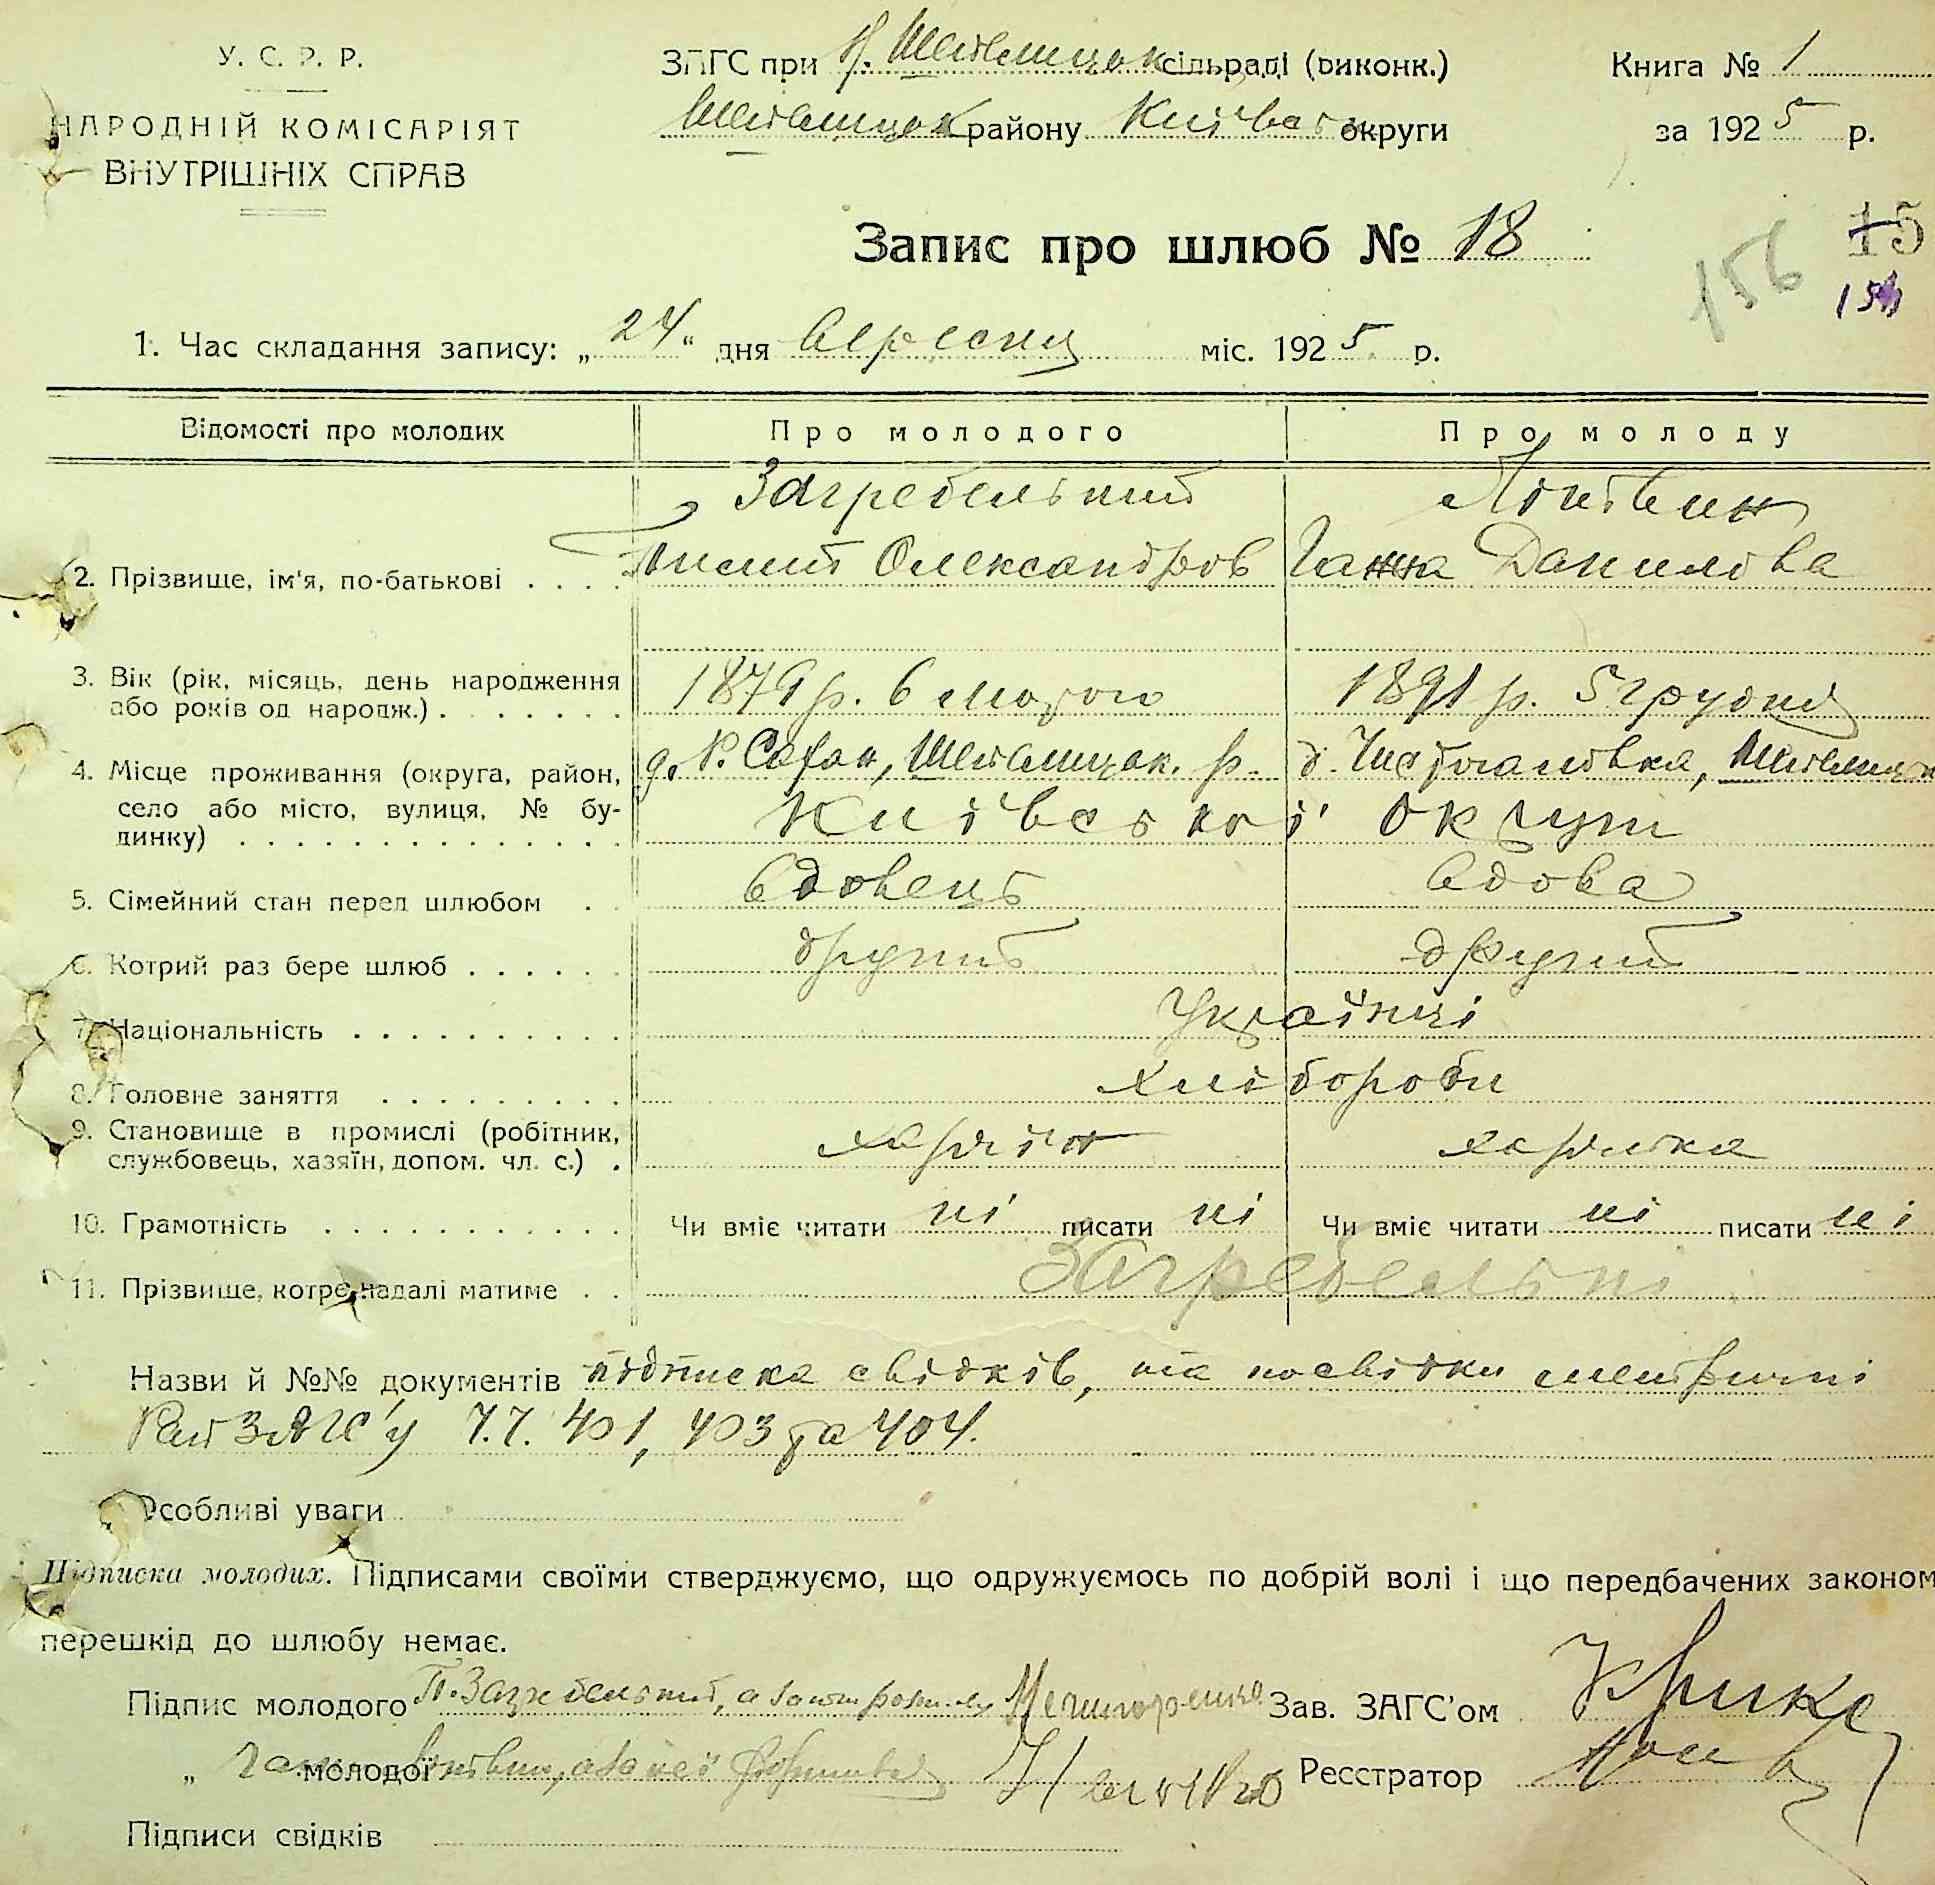 У. С. Р. Р.
НАРОДНІЙ КОМІСАРІЯТ
ВНУТРІШНІХ СПРАВ
ЗАГС при Н. Шепелицок сільраді (виконк.)
Шепелицок району Київськ округи
Книга № 1
за 1925 р.
Запис про шлюб № 18
156
15
1. Час складання запису: „24“ дня вересня міс. 1925 р.
Відомості про молодих Про молодого Про молоду
Загребельний Літвин
2. Прізвище, ім'я, по-батькові . . . . Пилип Олександров Ганна Данилова
3. Вік (рік, місяць, день народження 1879 р. 6 лютого 1891 р. 5 грудня
або років од народж.) . . . . . . .
4. Місце проживання (округа, район, Шепелицок. р. Чистогалівка, Шепелицок
село або місто, вулиця, № бу- Київської округи
динку) . . . . . . . . . . . . . .
5. Сімейний стан перед шлюбом . . вдовець вдова
6. Котрий раз бере шлюб . . . . . . другий другий
7. Національність . . . . . . . . . . Українці
8. Головне заняття . . . . . . . . . хлібороби
9. Становище в промислі (робітник, хазяїн хазяйка
службовець, хазяїн, допом. чл. с.) .
10. Грамотність . . . . . . . . . . . Чи вміє читати ні писати ні Чи вміє читати ні писати ні
11. Прізвище, котре надалі матиме . . Загребельні
Назви й №№ документів підписка свідків, та посвідки метричні
ЗАГС'у 401, 403 та 404.
Особливі уваги
Підписка молодих. Підписами своїми стверджуємо, що одружуємось по добрій волі і що передбачених законом
перешкід до шлюбу немає.
Підпис молодого П. Загребельний, а за Зав. ЗАГС'ом
„ молодої Літвин, а за неї Реєстратор
Підписи свідків